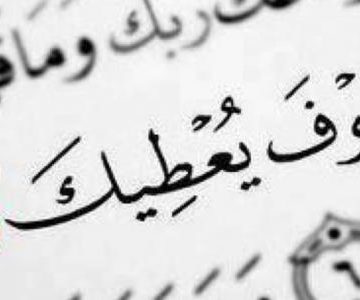 ربك وما
وْفَ يُعْطِيكَ